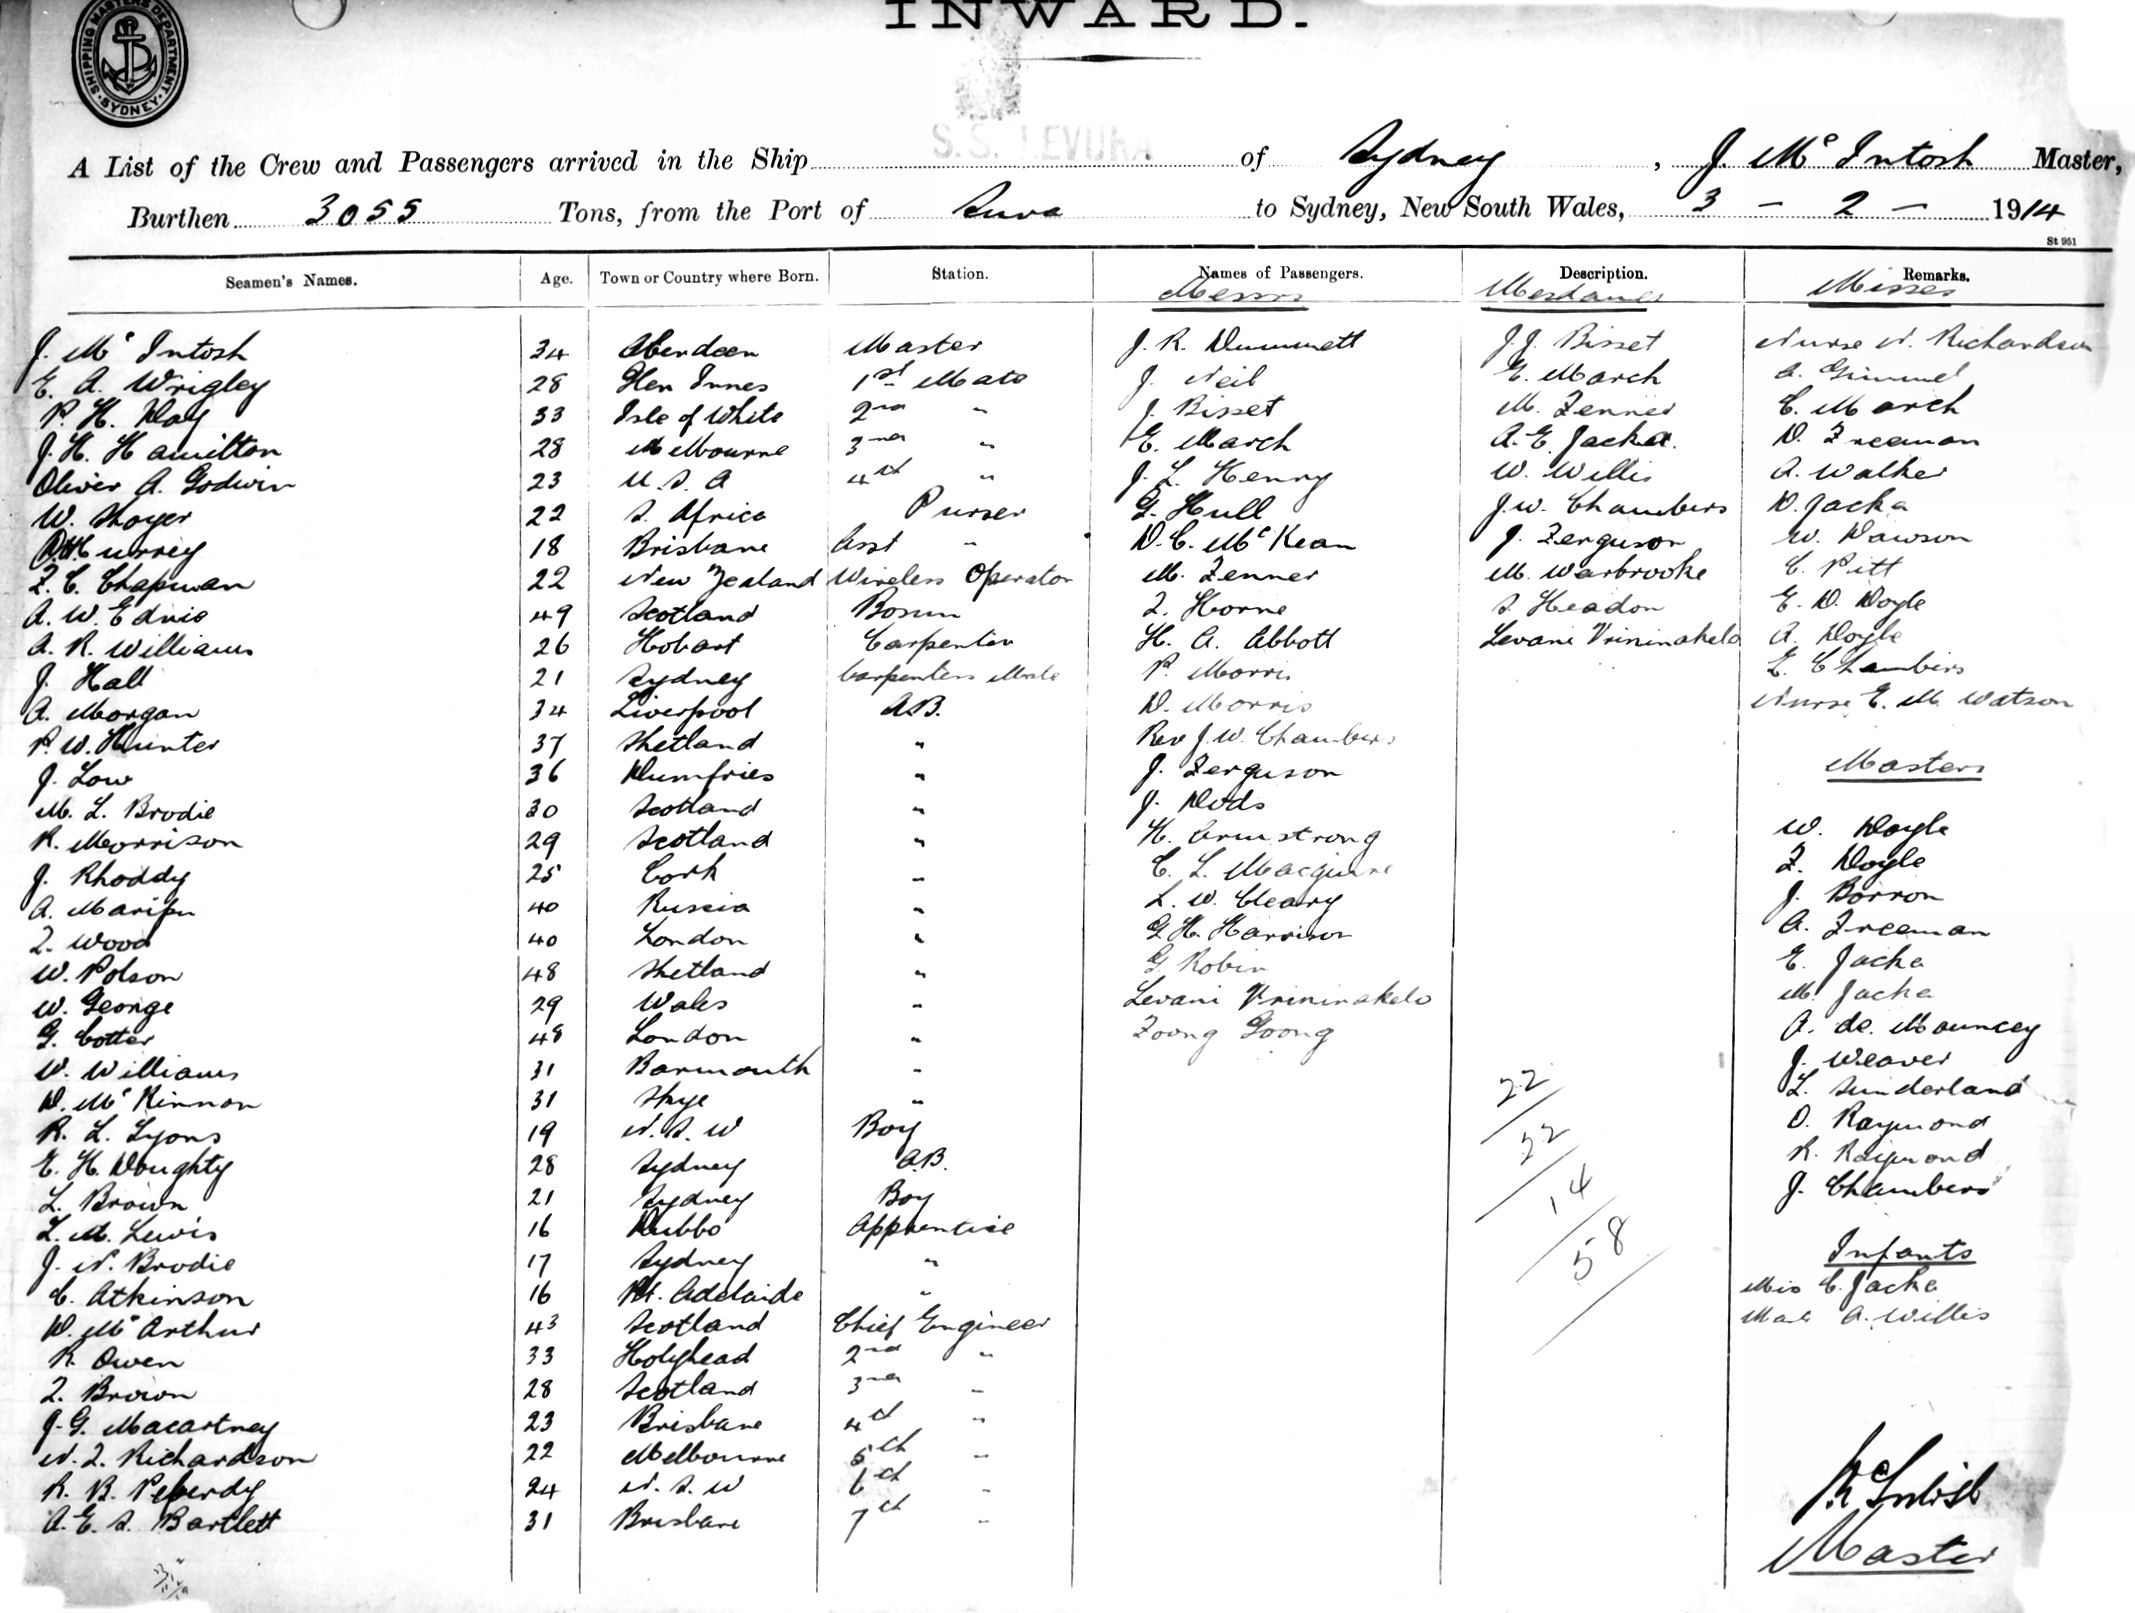 INWARD.
SHIPPING MASTERS DEPARTMENT. SYDNEY
A List of the Crew and Passengers arrived in the Ship S.S. LEVUKA of Sydney, J. McIntosh Master,
Burthen 3055 Tons, from the Port of Suva to Sydney, New South Wales, 3 - 2 - 1914
St 951
Seamen's Names. Age. Town or Country where Born. Station. Names of Passengers. Description. Remarks.
Messrs Mesdames Misses
J. McIntosh 34 Aberdeen Master J. R. Dummett J.J. Bisset Nurse N. Richardson
E. A. Wrigley 28 Glen Innes 1st Mate J. Neil E. March A. Gimmel
P. H. Day 33 Isle of White 2nd " J. Bisset M. Fenner C. March
J. H. Hamilton 28 Melbourne 3rd " E. March A. E. Jacka. D. Freeman
Oliver A. Godwin 23 U. S. A 4th " J. L. Henry W. Willis A. Walker
W. Shayer 22 S. Africa Purser G. Hull J.W. Chambers D. Jacka
Currey 18 Brisbane Asst " D. C. McKean J. Ferguson W. Dawson
F. C. Chapman 22 New Zealand Wireless Operator M. Fenner M. Warbrooke C. Pitt
A. W. Ednie 49 Scotland Bosun F. Horne S. Headon E. D. Doyle
A. R. Williams 26 Hobart Carpenter H. A. Abbott Levani Vrininakelo A. Doyle
J. Hall 21 Sydney Carpenters Mate P. Morris E. Chambers
A. Morgan 34 Liverpool A.B. D. Morris Nurse E. M. Watson
P. W. Hunter 37 Shetland " Rev J. W. Chambers
J. Low 36 Dumfries " J. Ferguson Masters
M. L. Brodie 30 Scotland " J. Dods
R. Morrison 29 Scotland " H. Armstrong W. Doyle
J. Rhoddy 25 Cork " C. L. Macquire F. Doyle
A. 40 Russia " L. W. Cleary J. Borron
F. Wood 40 London " G. H. Harrison A. Freeman
W. Polson 48 Shetland " G. Robin E. Jacka
W. George 29 Wales " Levani Vrininakelo M. Jacka
G. Cotter 48 London " Foong Goong A. de. Mouncey
W. Williams 31 Barmouth " J. Weaver
D. McKinnon 31 Skye " 22 L. Sunderland
R. L. Lyons 19 N. S. W Boy 22 D. Raymond
E. H. Doughty 28 Sydney A.B. 14 R. Raymond
L. Brown 21 Sydney Boy 58 J. Chambers
L. M. Lewis 16 Dubbo Apprentice
J. N. Brodie 17 Sydney " Infants
C. Atkinson 16 Pt. Adelaide " Mis C. Jacka
D. McArthur 43 Scotland Chief Engineer A. Willis
R. Owen 33 Holyhead 2nd "
F. Brown 28 Scotland 3rd "
J. G. Macartney 23 Brisbane 4th "
N. F. Richardson 22 Melbourne 5th "
R. B. Peberdy 24 N. S. W 6th "
A. E. S. Bartlett 31 Brisbane 7th "
McIntosh
Master